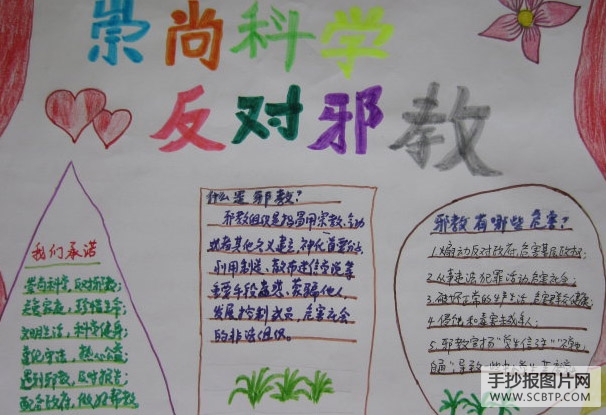 崇尚科学
反对邪教
我们承诺
崇尚科学,反对邪教;
关爱家庭,珍惜生命;
文明生活,科学健身;
遵纪守法,热心公益;
遇到邪教,及时报告;
配合政府,做好帮教
什么是邪教?
邪教组织是指冒用宗教、气功
或者其他名义建立,神化首要分子,
利用制造、散布迷信邪说等
手段蛊惑、蒙骗他人,
发展控制成员,危害社会
的非法组织。
邪教有哪些危害?
1.煽动反对政府,危害基层政权;
2.从事违法犯罪活动危害社会;
3.破坏正常的生产生活
4.侵蚀和毒害未成年人;
5.邪教宣扬
手抄报图片网
WWW.SCBTP.COM